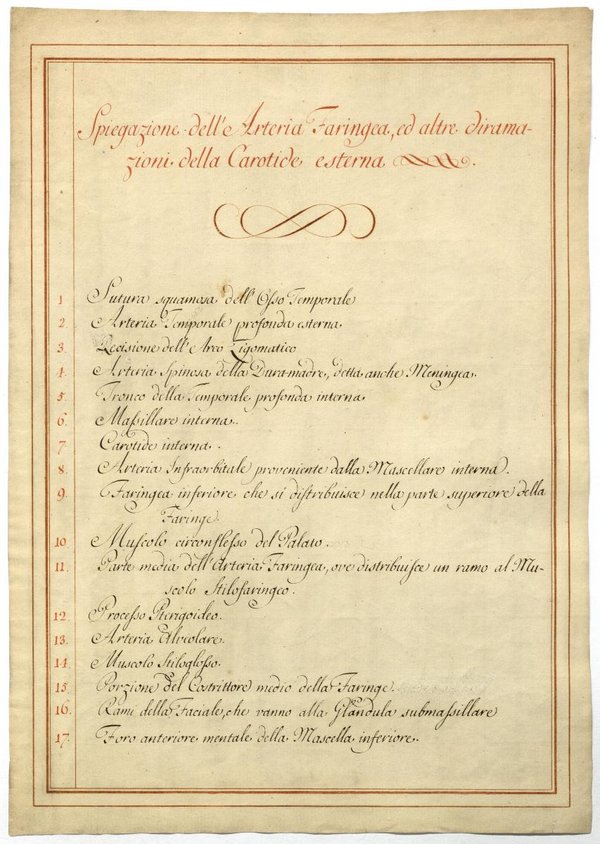 Spiegazione dell'Arteria Faringea, ed altre dirama-
zioni della Carotide esterna.
1 Sutura squamosa dell'Osso Temporale
2. Arteria Temporale profonda esterna
3. Recisione dell'Arco Zigomatico
4. Arteria Spinosa della Dura-madre, detta anche Meningea.
5. Tronco della Temporale profonda interna
6. Maſsillare interna.
7 Carotide interna.
8. Arteria Infraorbitale proveniente dalla Mascellare interna.
9. Faringea inferiore che si diſtribuisce nella parte superiore della
Faringe.
10 Muſcolo circonfleſso del Palato.
11. Parte media dell'Arteria Faringea, ove diſtribuiſce un ramo al Mu-
scolo Stilofaringeo.
12. Proceſso Pterigoideo.
13. Arteria Alveolare.
14. Muscolo Stilogloſso.
15. Porzione del Coſtrittore medio della Faringe
16. Rami della Faciale, che vanno alla Glandula submaſsillare
17. Foro anteriore mentale della Mascella inferiore.